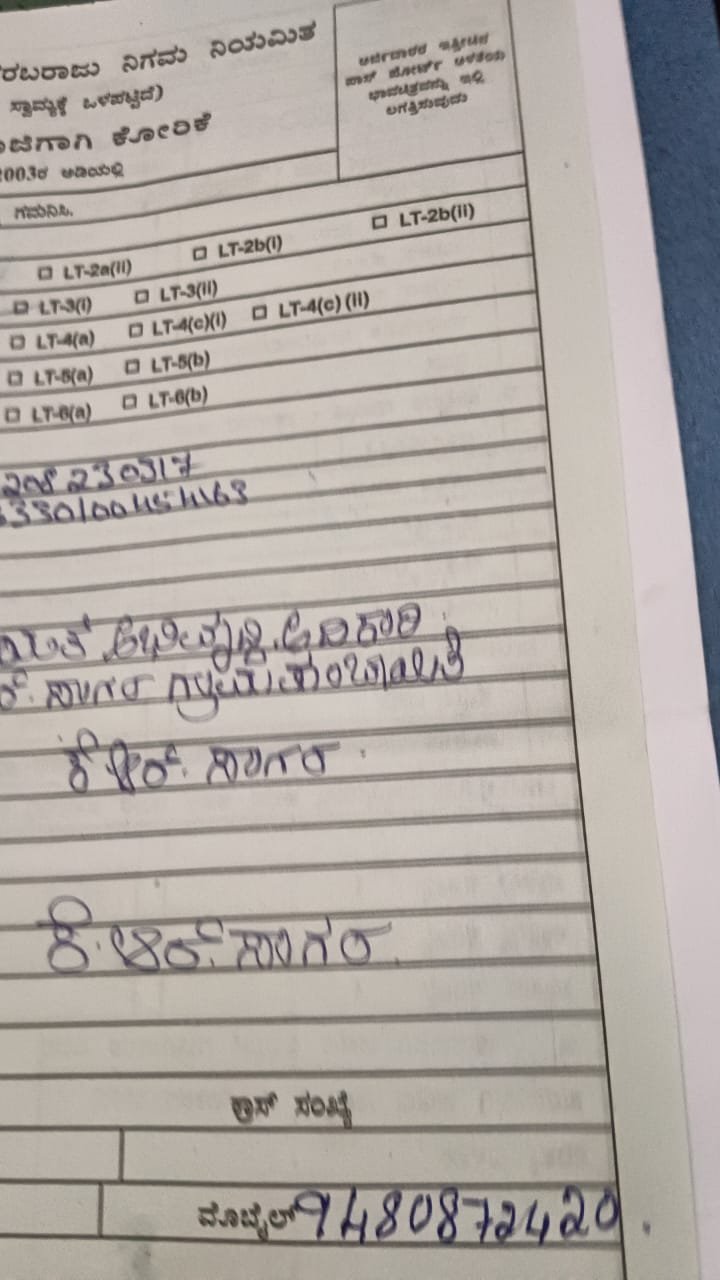 ರಬರಾಜು ನಿಗಮ ನಿಯಮಿತ
ಸ್ವಾಮ್ಯಕ್ಕೆ ಒಳಪಟ್ಟಿದೆ)
ಜೆಗಾಗಿ ಕೋರಿಕೆ
2003ರ ಅಡಿಯಲ್ಲಿ
ಅರ್ಜಿದಾರರ ಇತ್ತೀಚಿನ
ಪಾಸ್ ಪೋರ್ಟ್ ಅಳತೆಯ
ಭಾವಚಿತ್ರವನ್ನು ಇಲ್ಲಿ
ಲಗತ್ತಿಸುವುದು
ಗಮನಿಸಿ.
□ LT-2a(ii) □ LT-2b(i) □ LT-2b(ii)
□ LT-3(i) □ LT-3(ii)
□ LT-4(a) □ LT-4(c)(i) □ LT-4(c) (ii)
□ LT-5(a) □ LT-5(b)
□ LT-6(a) □ LT-6(b)
208230317
330100454163
ಅಭಿವೃದ್ಧಿ ಅಧಿಕಾರಿ
ಸಾಗರ ಗ್ರಾಮ ಪಂಚಾಯಿತಿ
ಕೆ ಆರ್. ಸಾಗರ.
ಕೆ.ಆರ್.ಸಾಗರ.
ಕ್ರಾಸ್ ಸಂಖ್ಯೆ
ಮೊಬೈಲ್ 9480872420.